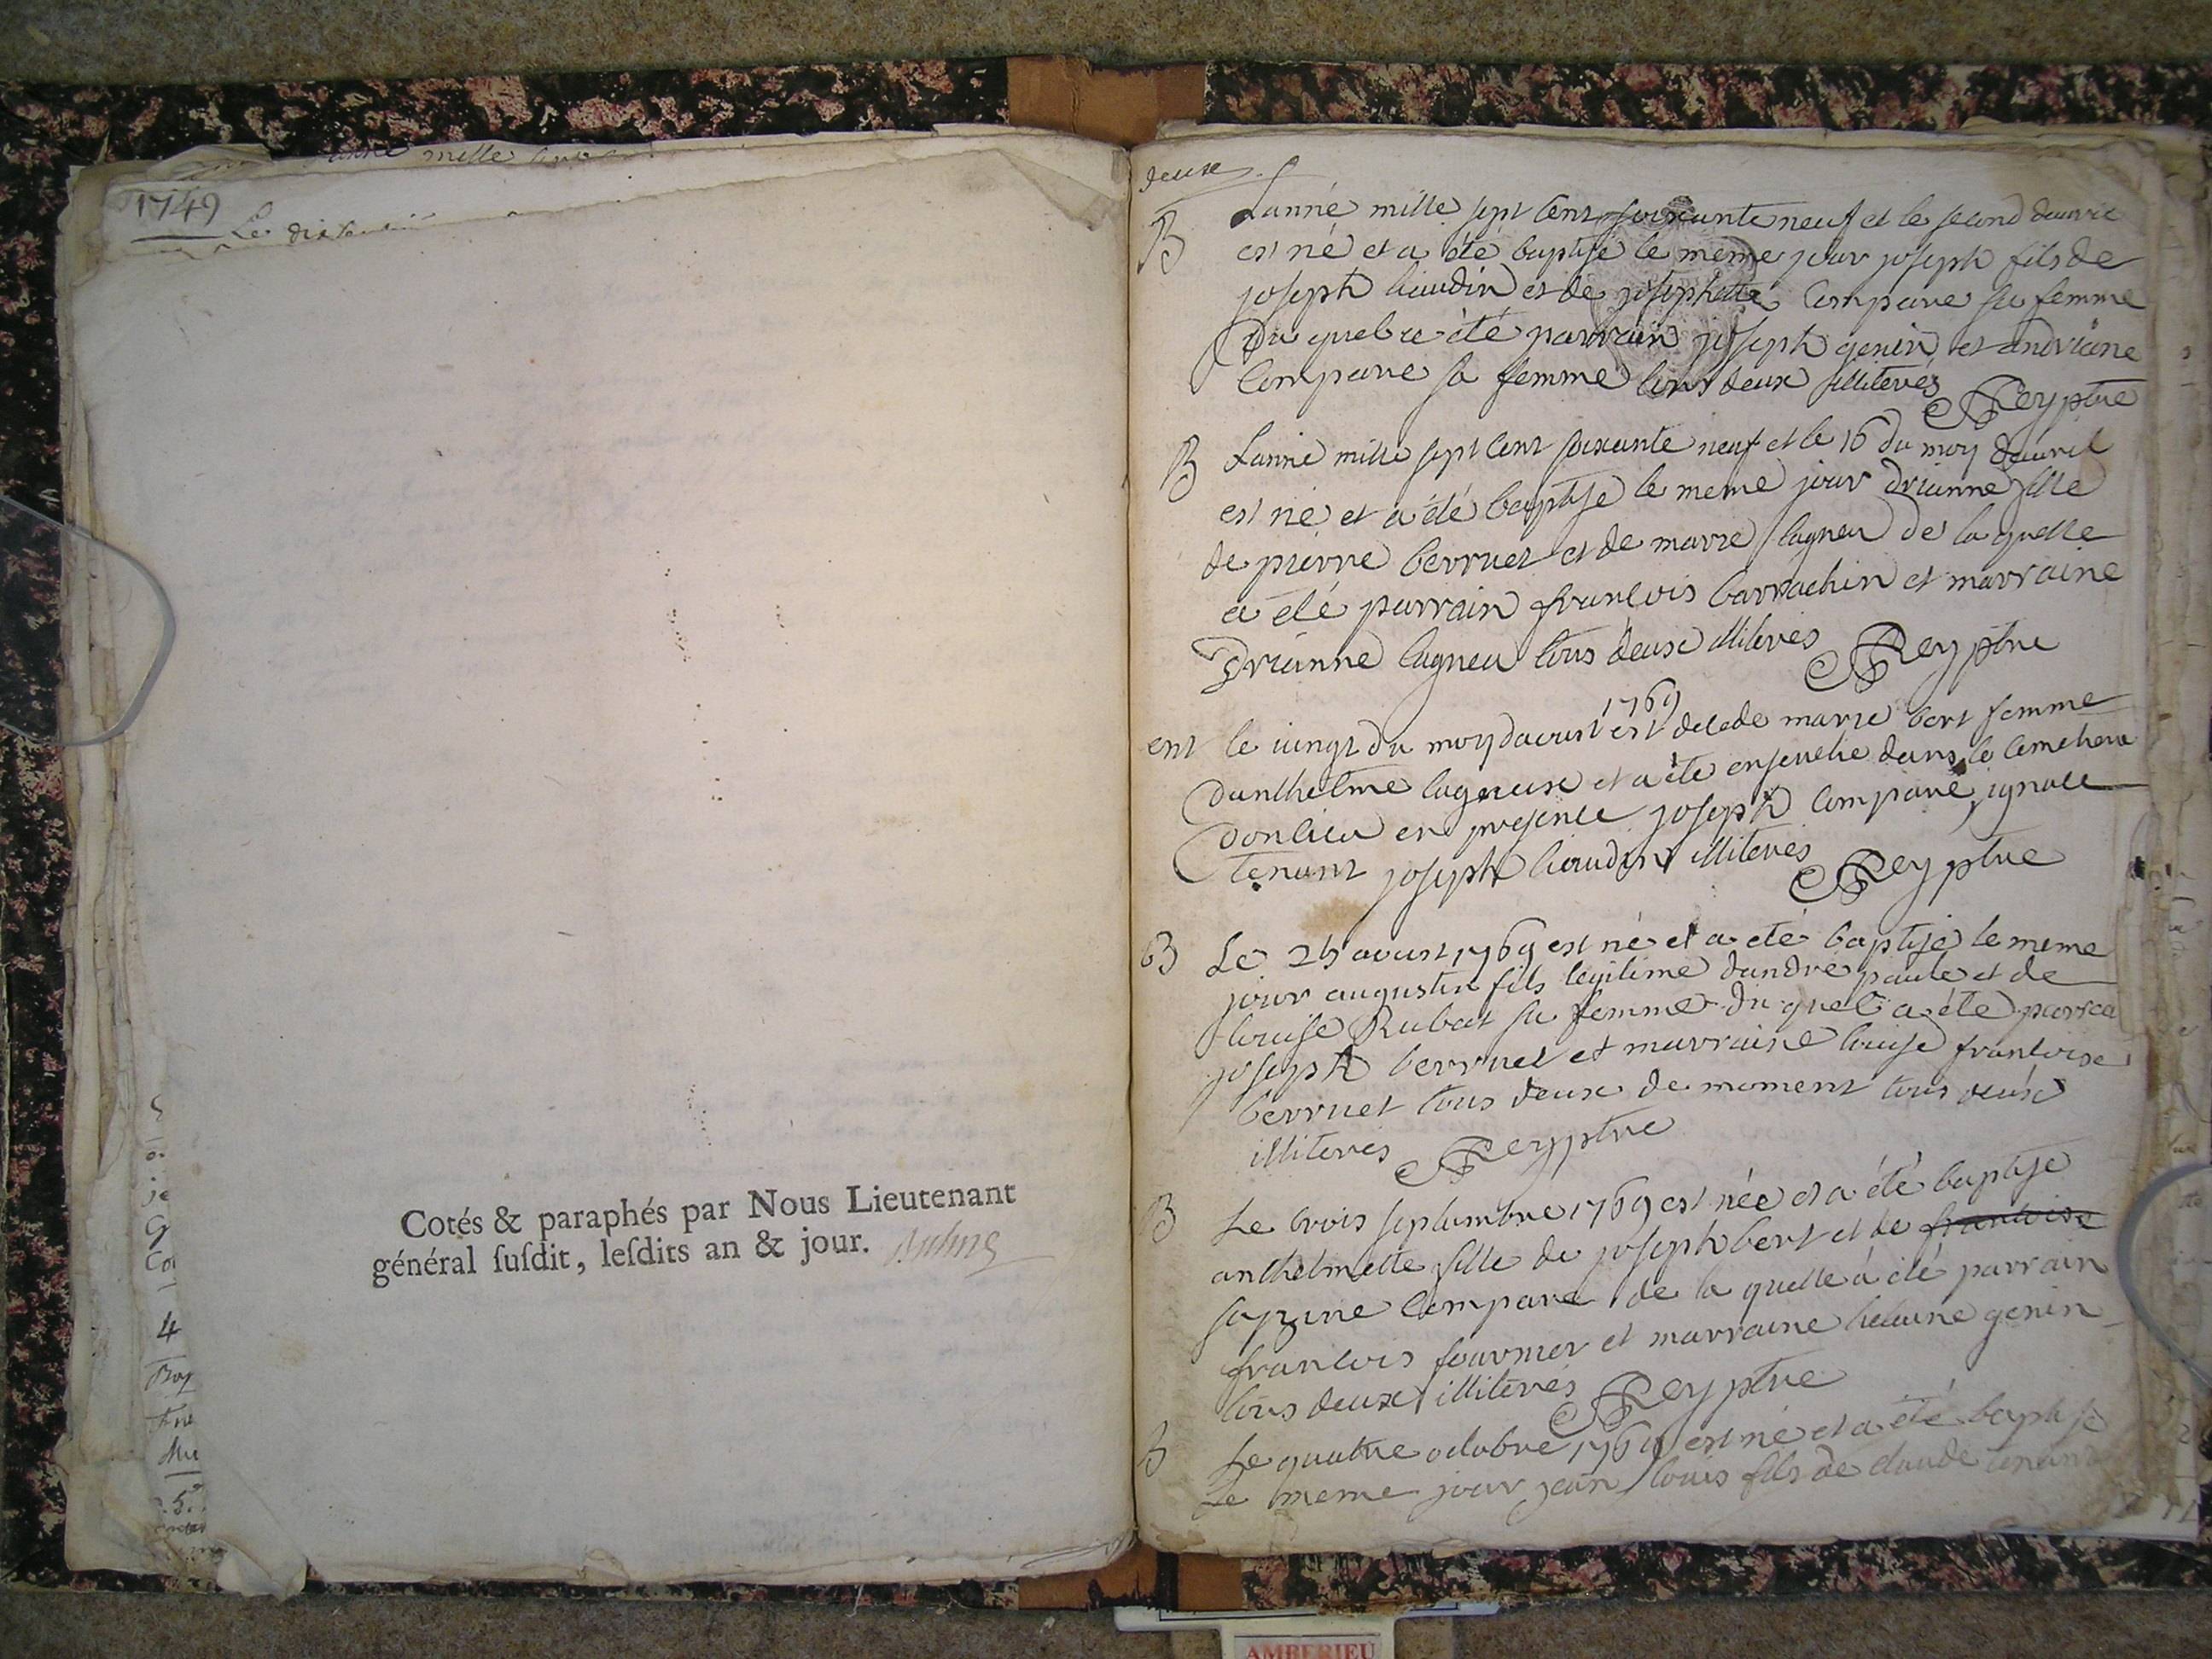 1749
Le
Cotés & paraphés par Nous Lieutenant
général susdit, lesdits an & jour.
deuxe
B Lanné mille sept cent soixante neuf et le second
est né et a été baptisé le meme jour joseph fils de
joseph liaudin et de josephette compare sa femme
Du quel a été parrain joseph genin et andriane
compare sa femme tous deux illiterés Rey ptre
B Lanné mille sept cent soixante neuf et le 16 du moy davril
est né et a été baptisé le meme jour drianne fille
de pierre berruet et de marie lagneu de la quelle
a été parrain francois barrachin et marraine
Drianne lagneu tous deux illiterés Rey ptre
1769
ent le vingt du moy daoust est decede marie bert femme
danthelme lagneux et a été ensevelie dans le
donlieu en presence joseph compare, ignace
tenant joseph liaudin illiterés Rey ptre
B Le 25 aoust 1769 est né et a eté baptisé le meme
jour augustin fils legitime dandré paule et de
louise Rubat sa femme du quel a été
joseph berruet et marraine louise francoise
berruet tous deux de moment tous deux
illiterés Rey ptre
B Le trois septembre 1769 est née et a été baptisé
anthelmette fille de joseph bert et de francoise
compare de la quelle a été parrain
francois fournier et marraine genin
tous deux illiterés Rey ptre
B Le quatre octobre 1769 est né et a été baptisé
Le meme jour jean louis fils de claude tenant
AMBERIEU